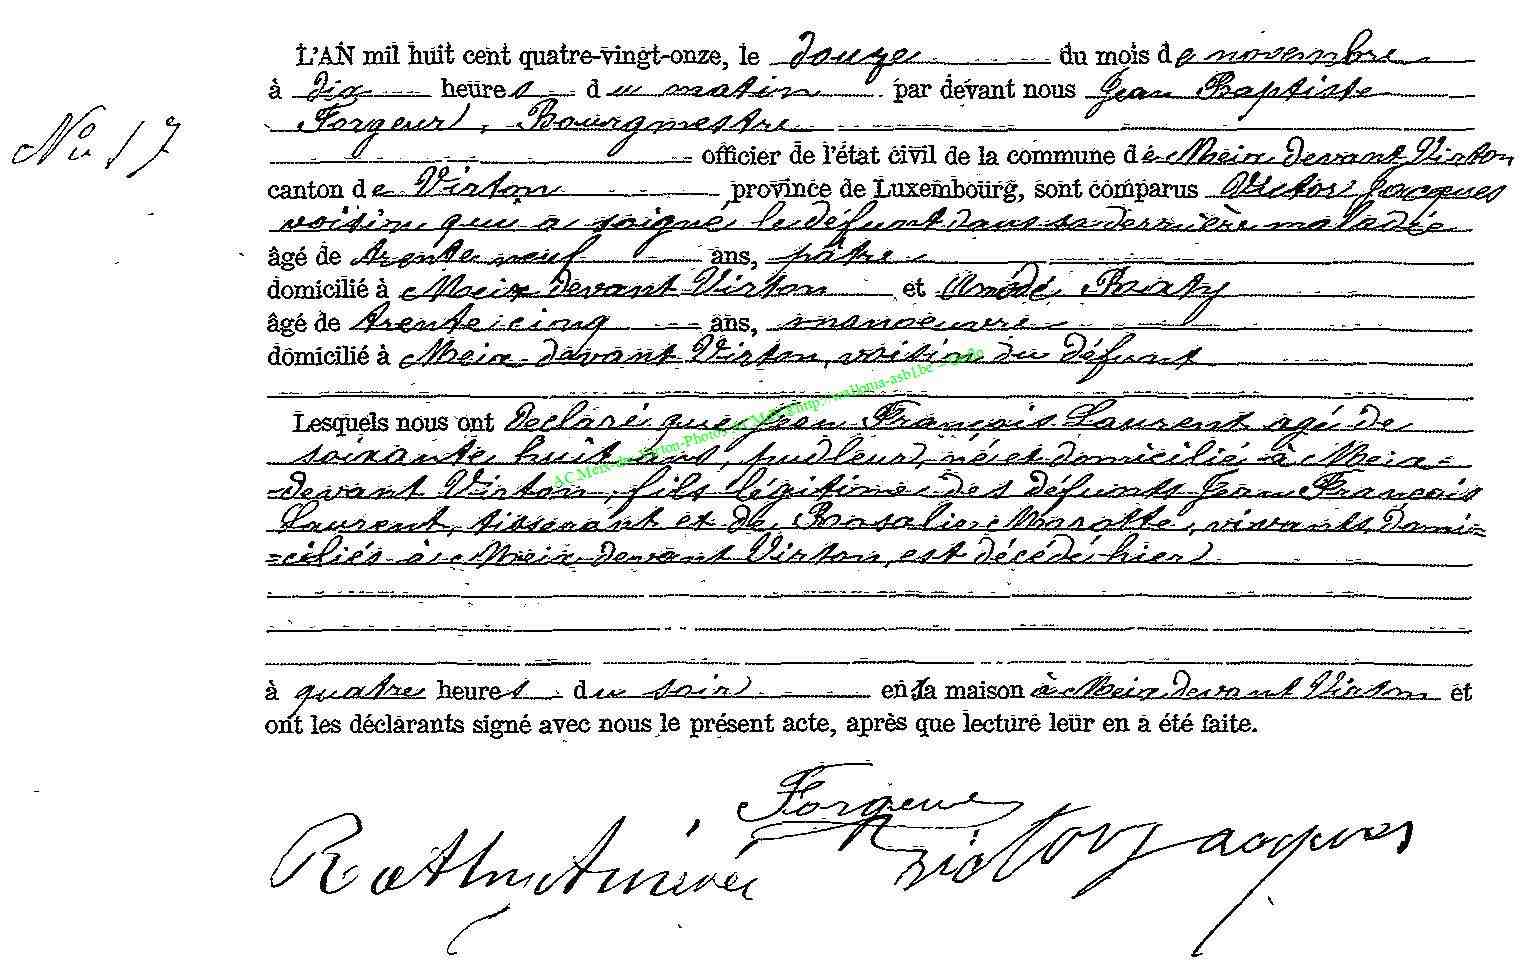 L'AN mil huit cent quatre-vingt-onze, le douze du mois de novembre
à dix heures du matin par devant nous Jean Baptiste
Forgeur, Bourgmestre
No 17
officier de l'état civil de la commune de Meix devant Virton
canton de Virton province de Luxembourg, sont comparus Victor Jacques
voisin qui a soigné le défunt dans sa dernière maladie
âgé de trente neuf ans, pâtre
domicilié à Meix devant Virton et Amédé
âgé de trente cinq ans, manoeuvre
domicilié à Meix-devant Virton, voisin du défunt
Lesquels nous ont déclaré que Jean François Laurent agé de
soixante huit ans, pudleur, né et domicilié à Meix-
-devant Virton, fils légitime des défunts Jean François
Laurent, tisserant et de Rosalie Marotte, vivants domi=
=ciliés à Meix devant Virton, est décédé hier
à quatre heures du soir en la maison à Meix devant Virton et
ont les déclarants signé avec nous le présent acte, après que lecture leur en a été faite.
Forgeur
Victor Jacques